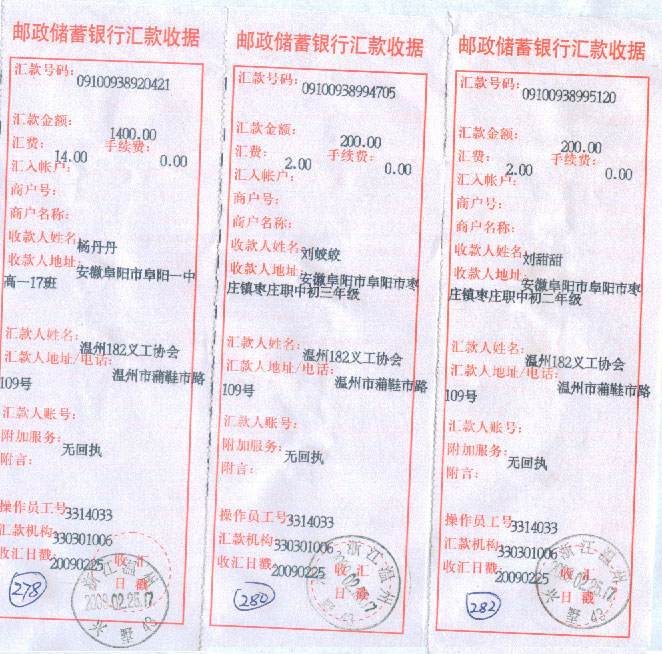 邮政储蓄银行汇款收据
汇款号码:
09100938920421
汇款金额:
1400.00
汇费:
手续费:
14.00
0.00
汇入帐户:
商户号:
商户名称:
收款人姓名:
杨丹丹
收款人地址:
安徽阜阳市阜阳一中
高一17班
汇款人姓名:
温州182义工协会
汇款人地址/电话:
温州市蒲鞋市路
109号
汇款人账号:
附加服务:
无回执
附言:
操作员工号
3314033
汇款机构
330301006
收汇日戳
20090225
收汇
日戳
浙江温州
2009.02.25.17
278
邮政储蓄银行汇款收据
汇款号码:
09100938994705
汇款金额:
200.00
汇费:
手续费:
2.00
0.00
汇入帐户:
商户号:
商户名称:
收款人姓名:
刘姣姣
收款人地址:
安徽阜阳市阜阳市枣
庄镇枣庄职中初三年级
汇款人姓名:
温州182义工协会
汇款人地址/电话:
温州市蒲鞋市路
109号
汇款人账号:
附加服务:
无回执
附言:
操作员工号
3314033
汇款机构
330301006
收汇日戳
20090225
收汇
日戳
浙江温州
280
邮政储蓄银行汇款收据
汇款号码:
09100938995120
汇款金额:
200.00
汇费:
手续费:
2.00
0.00
汇入帐户:
商户号:
商户名称:
收款人姓名:
刘甜甜
收款人地址:
安徽阜阳市阜阳市枣
庄镇枣庄职中初二年级
汇款人姓名:
温州182义工协会
汇款人地址/电话:
温州市蒲鞋市路
109号
汇款人账号:
附加服务:
无回执
附言:
操作员工号
3314033
汇款机构
330301006
收汇日戳
20090225
收汇
日戳
浙江温州
282